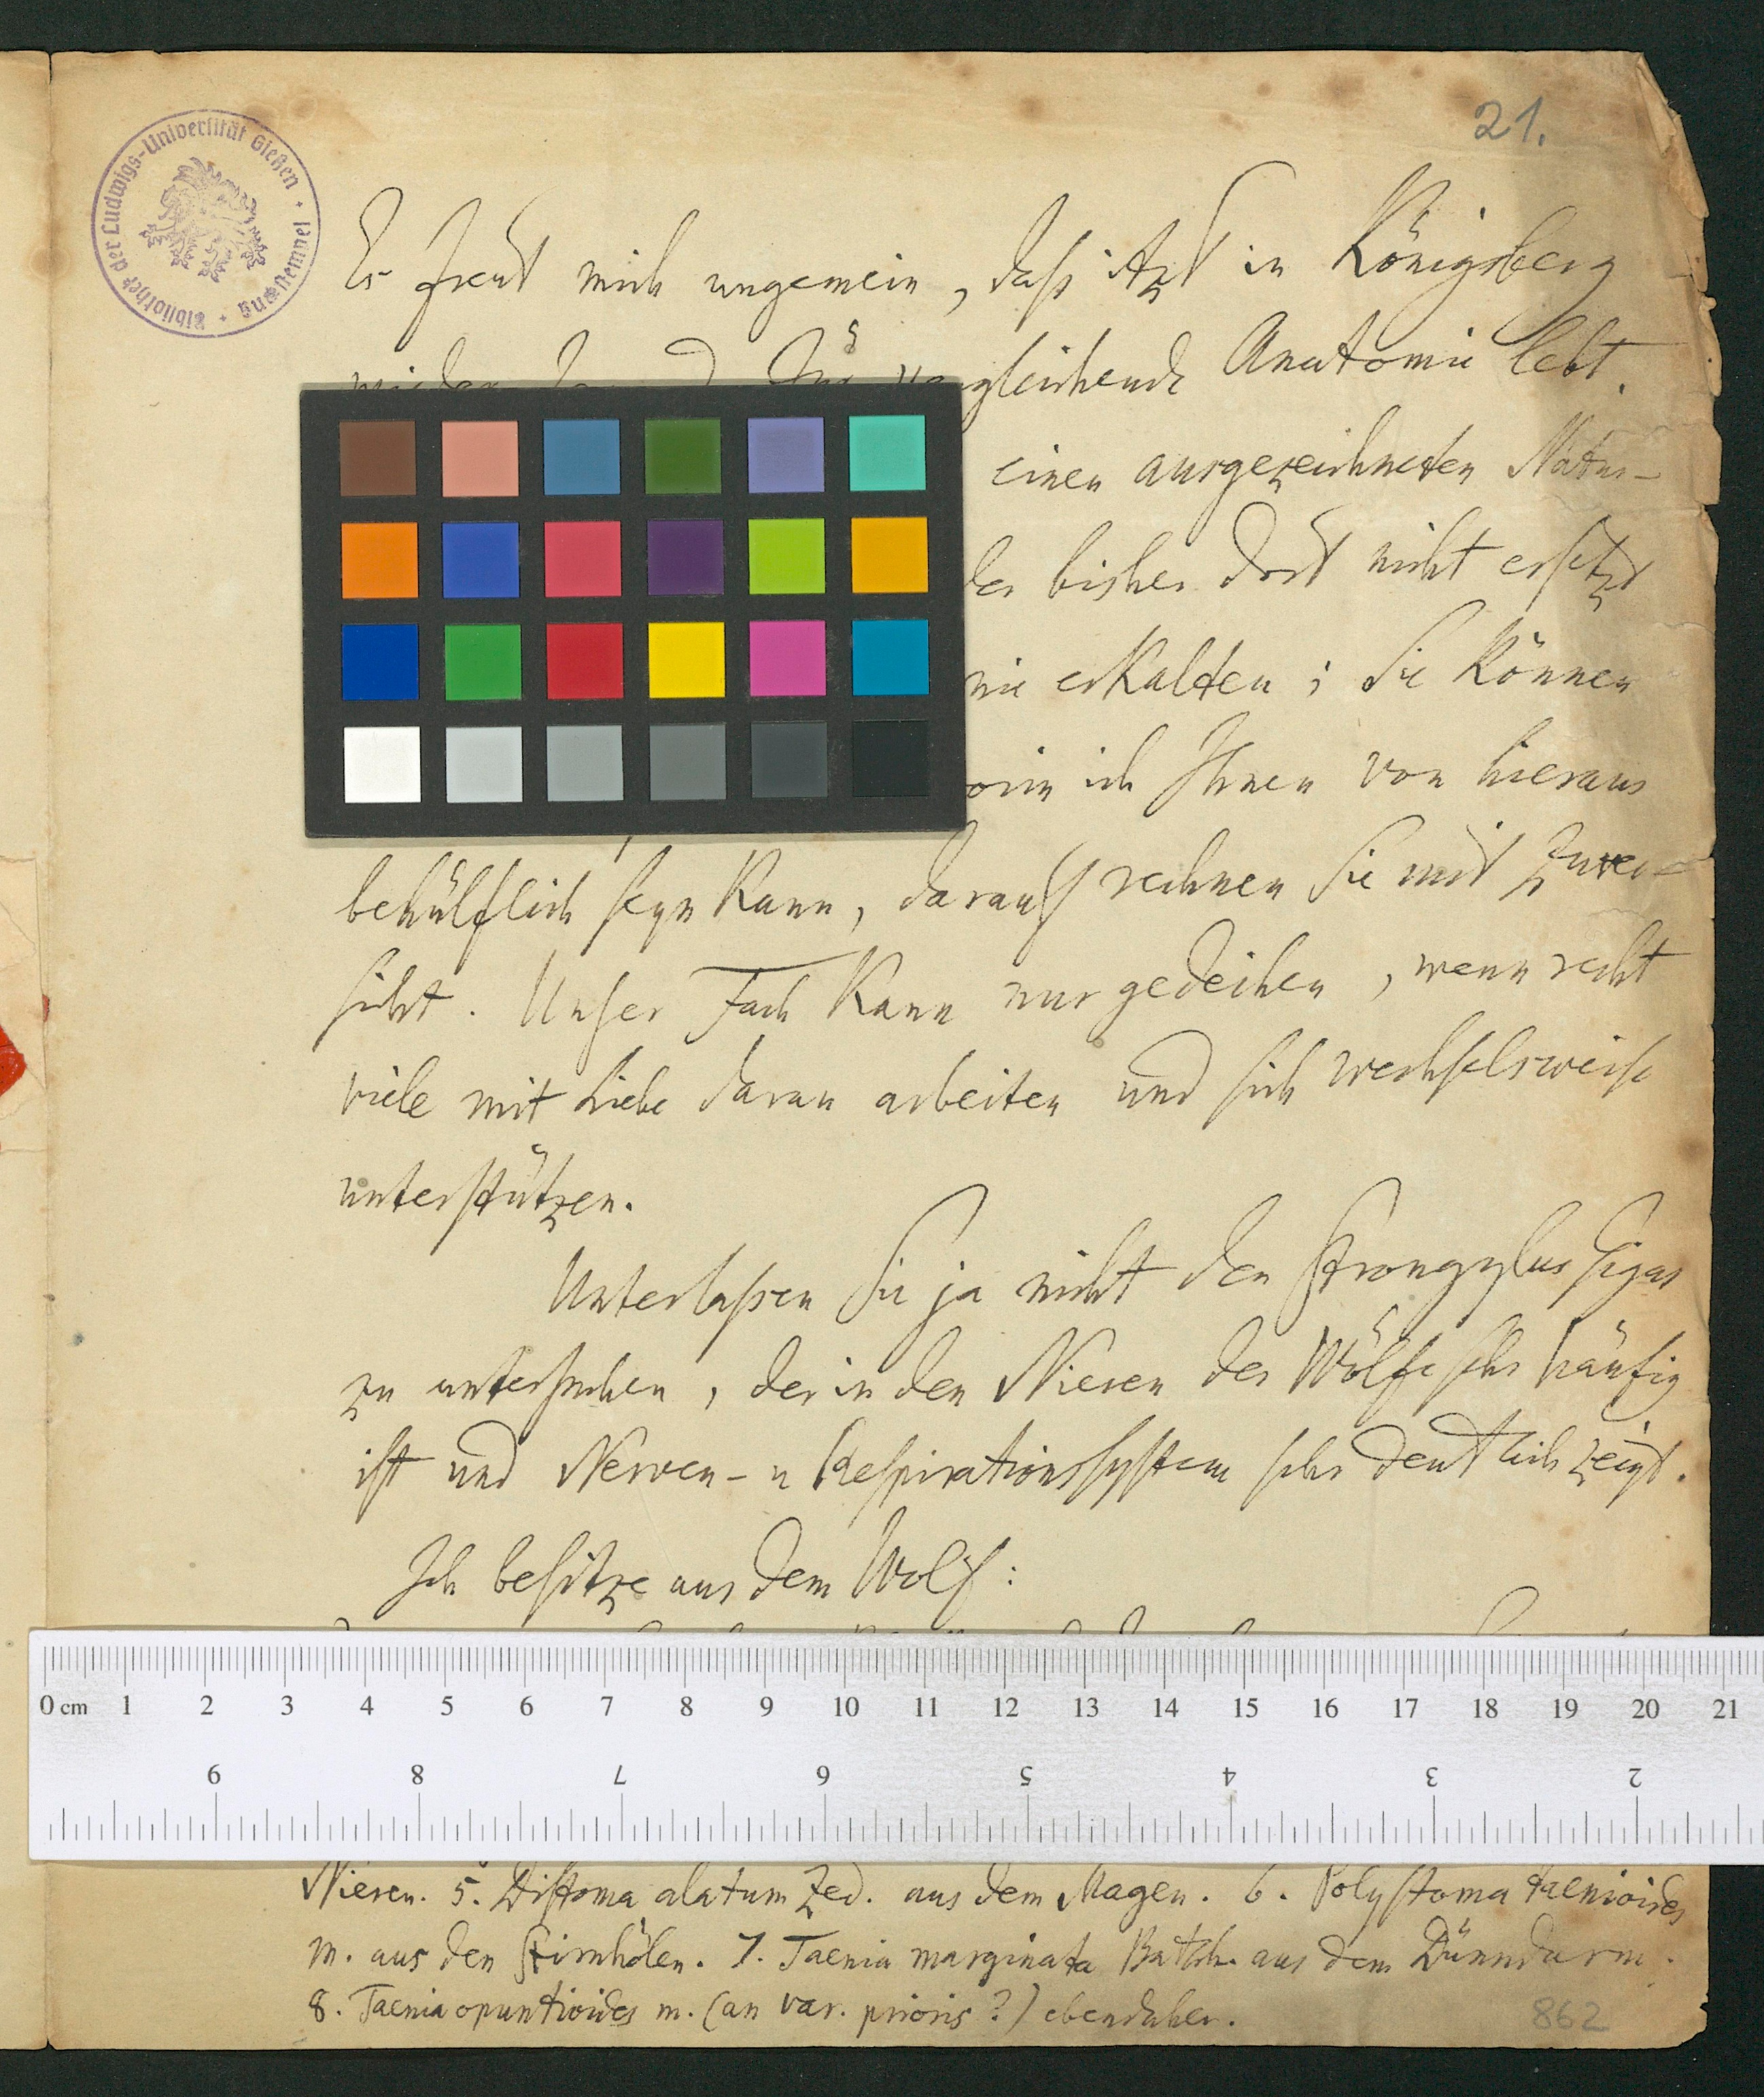 21.
Bibliothek der Ludwigs-Universität Gießen
Es freut mich ungemein, daß itzt in Königsberg
für vergleichende Anatomie lebt.
einen ausgezeichneten Natur-
der bisher dort nicht ersetzt
nie erkalten; Sie können
orin ich Ihnen von hieraus
behülflich seyn kann, darauf rechnen Sie mit Zuver-
sicht. Unser Fach kann nur gedeihen, wenn recht
viele mit Liebe daran arbeiten und sich wechselsweise
unterstützen.
Unterlaßen Sie ja nicht den Strongylus Gigas
zu untersuchen, der in den Nieren der Wölfe sehr häufig
ist und Nerven- u Respirationssystem sehr deutlich zeigt.
Ich besitze aus dem Wolf:
0 cm 1 2 3 4 5 6 7 8 9 10 11 12 13 14 15 16 17 18 19 20 21
9 8 7 6 5 4 3 2
Nieren. 5. Distoma alatum Zed. aus dem Magen. 6. Polystoma taenioides
m. aus den Stirnhölen. 7. Taenia marginata Batsch. aus dem Dünndarm.
8. Taenia opuntioides m. (an var. prioris?) ebendaher.
862